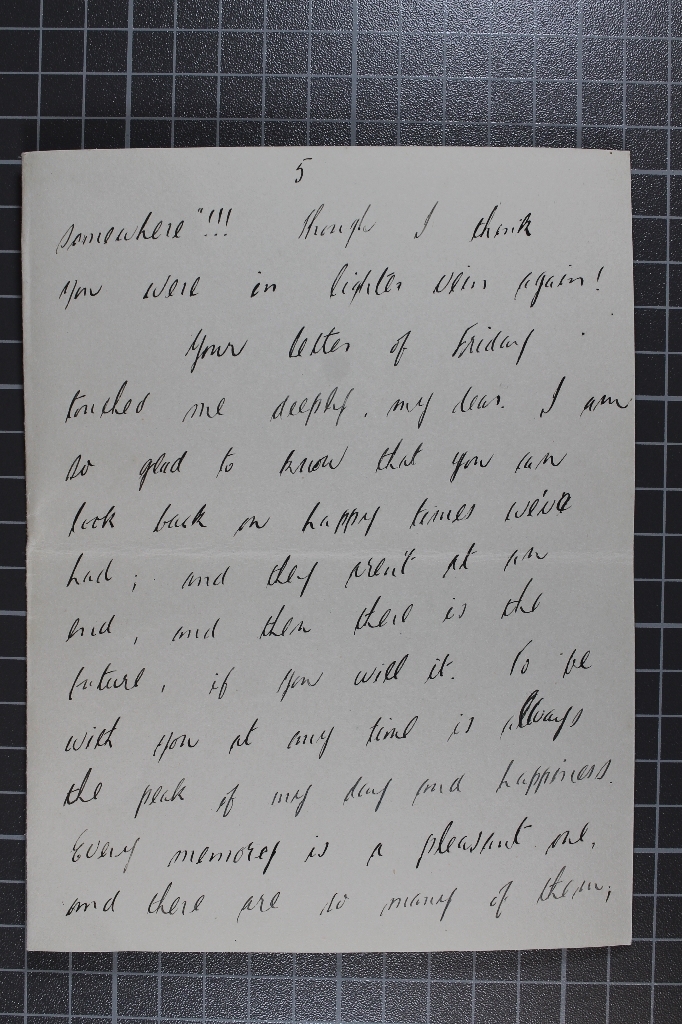 5
somewhere"!!! Though I think
you were in lighter vein again!
Your letter of Friday
touched me deeply, my dear. I am
so glad to know that you can
look back on happy times we've
had; and they aren't at an
end, and then there is the
future, if you will it. To be
with you at any time is always
the peak of my day and happiness.
Every memory is a pleasant one,
and there are so many of them;